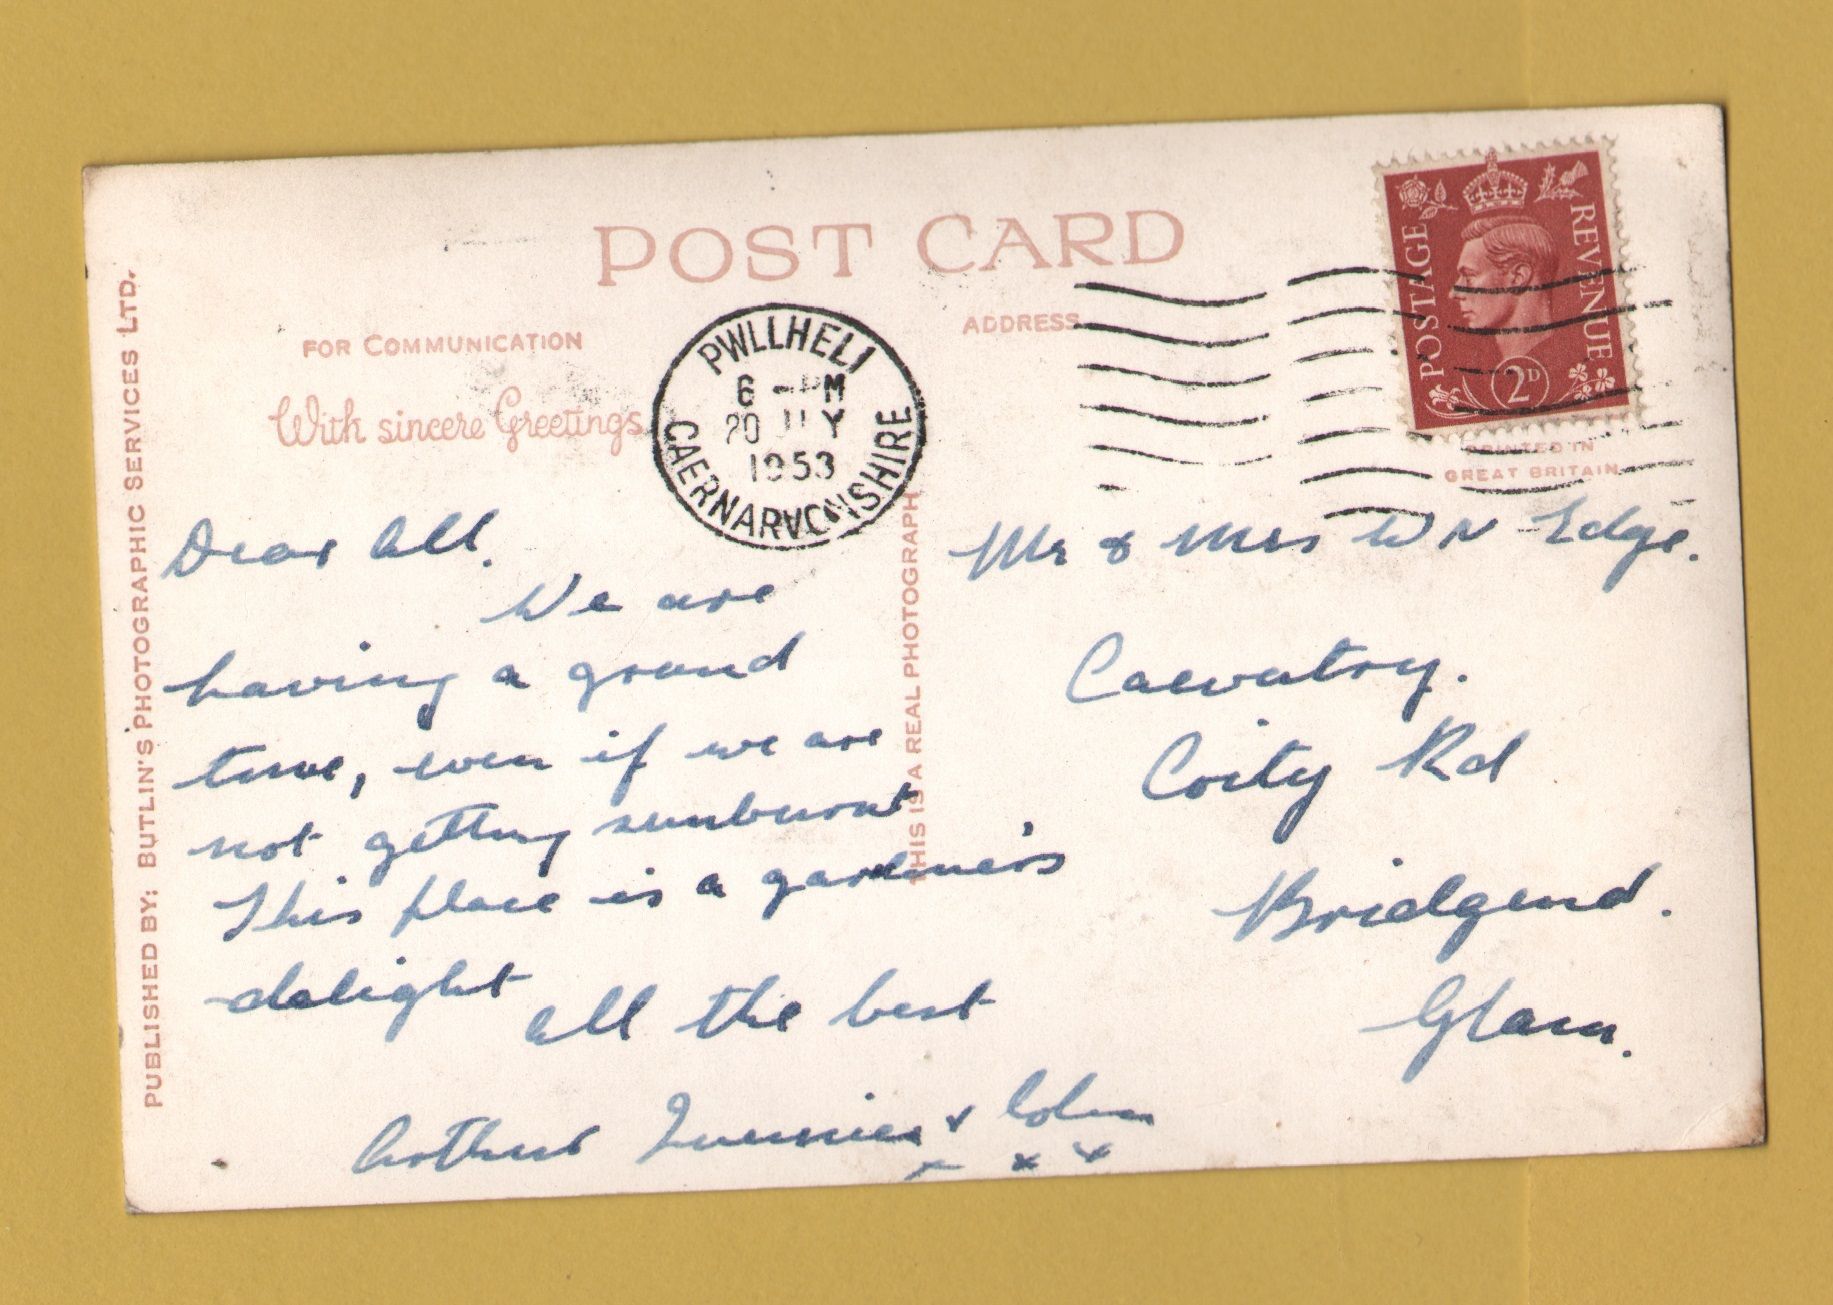 POST CARD
FOR COMMUNICATION
With sincere Greetings
ADDRESS
PWLLHELI
6 - PM
20 JLY
1953
CAERNARVONSHIRE
POSTAGE
REVENUE
2D
PRINTED IN
GREAT BRITAIN
PUBLISHED BY: BUTLIN'S PHOTOGRAPHIC SERVICES LTD.
THIS IS A REAL PHOTOGRAPH
Dear All.
We are
having a grand
time, even if we are
not getting sunburnt
This place is a gardener's
delight
All the best
Arthur & Colin
x x x
Mr & Mrs W N Edge.
Coity Rd
Bridgend.
Glam.